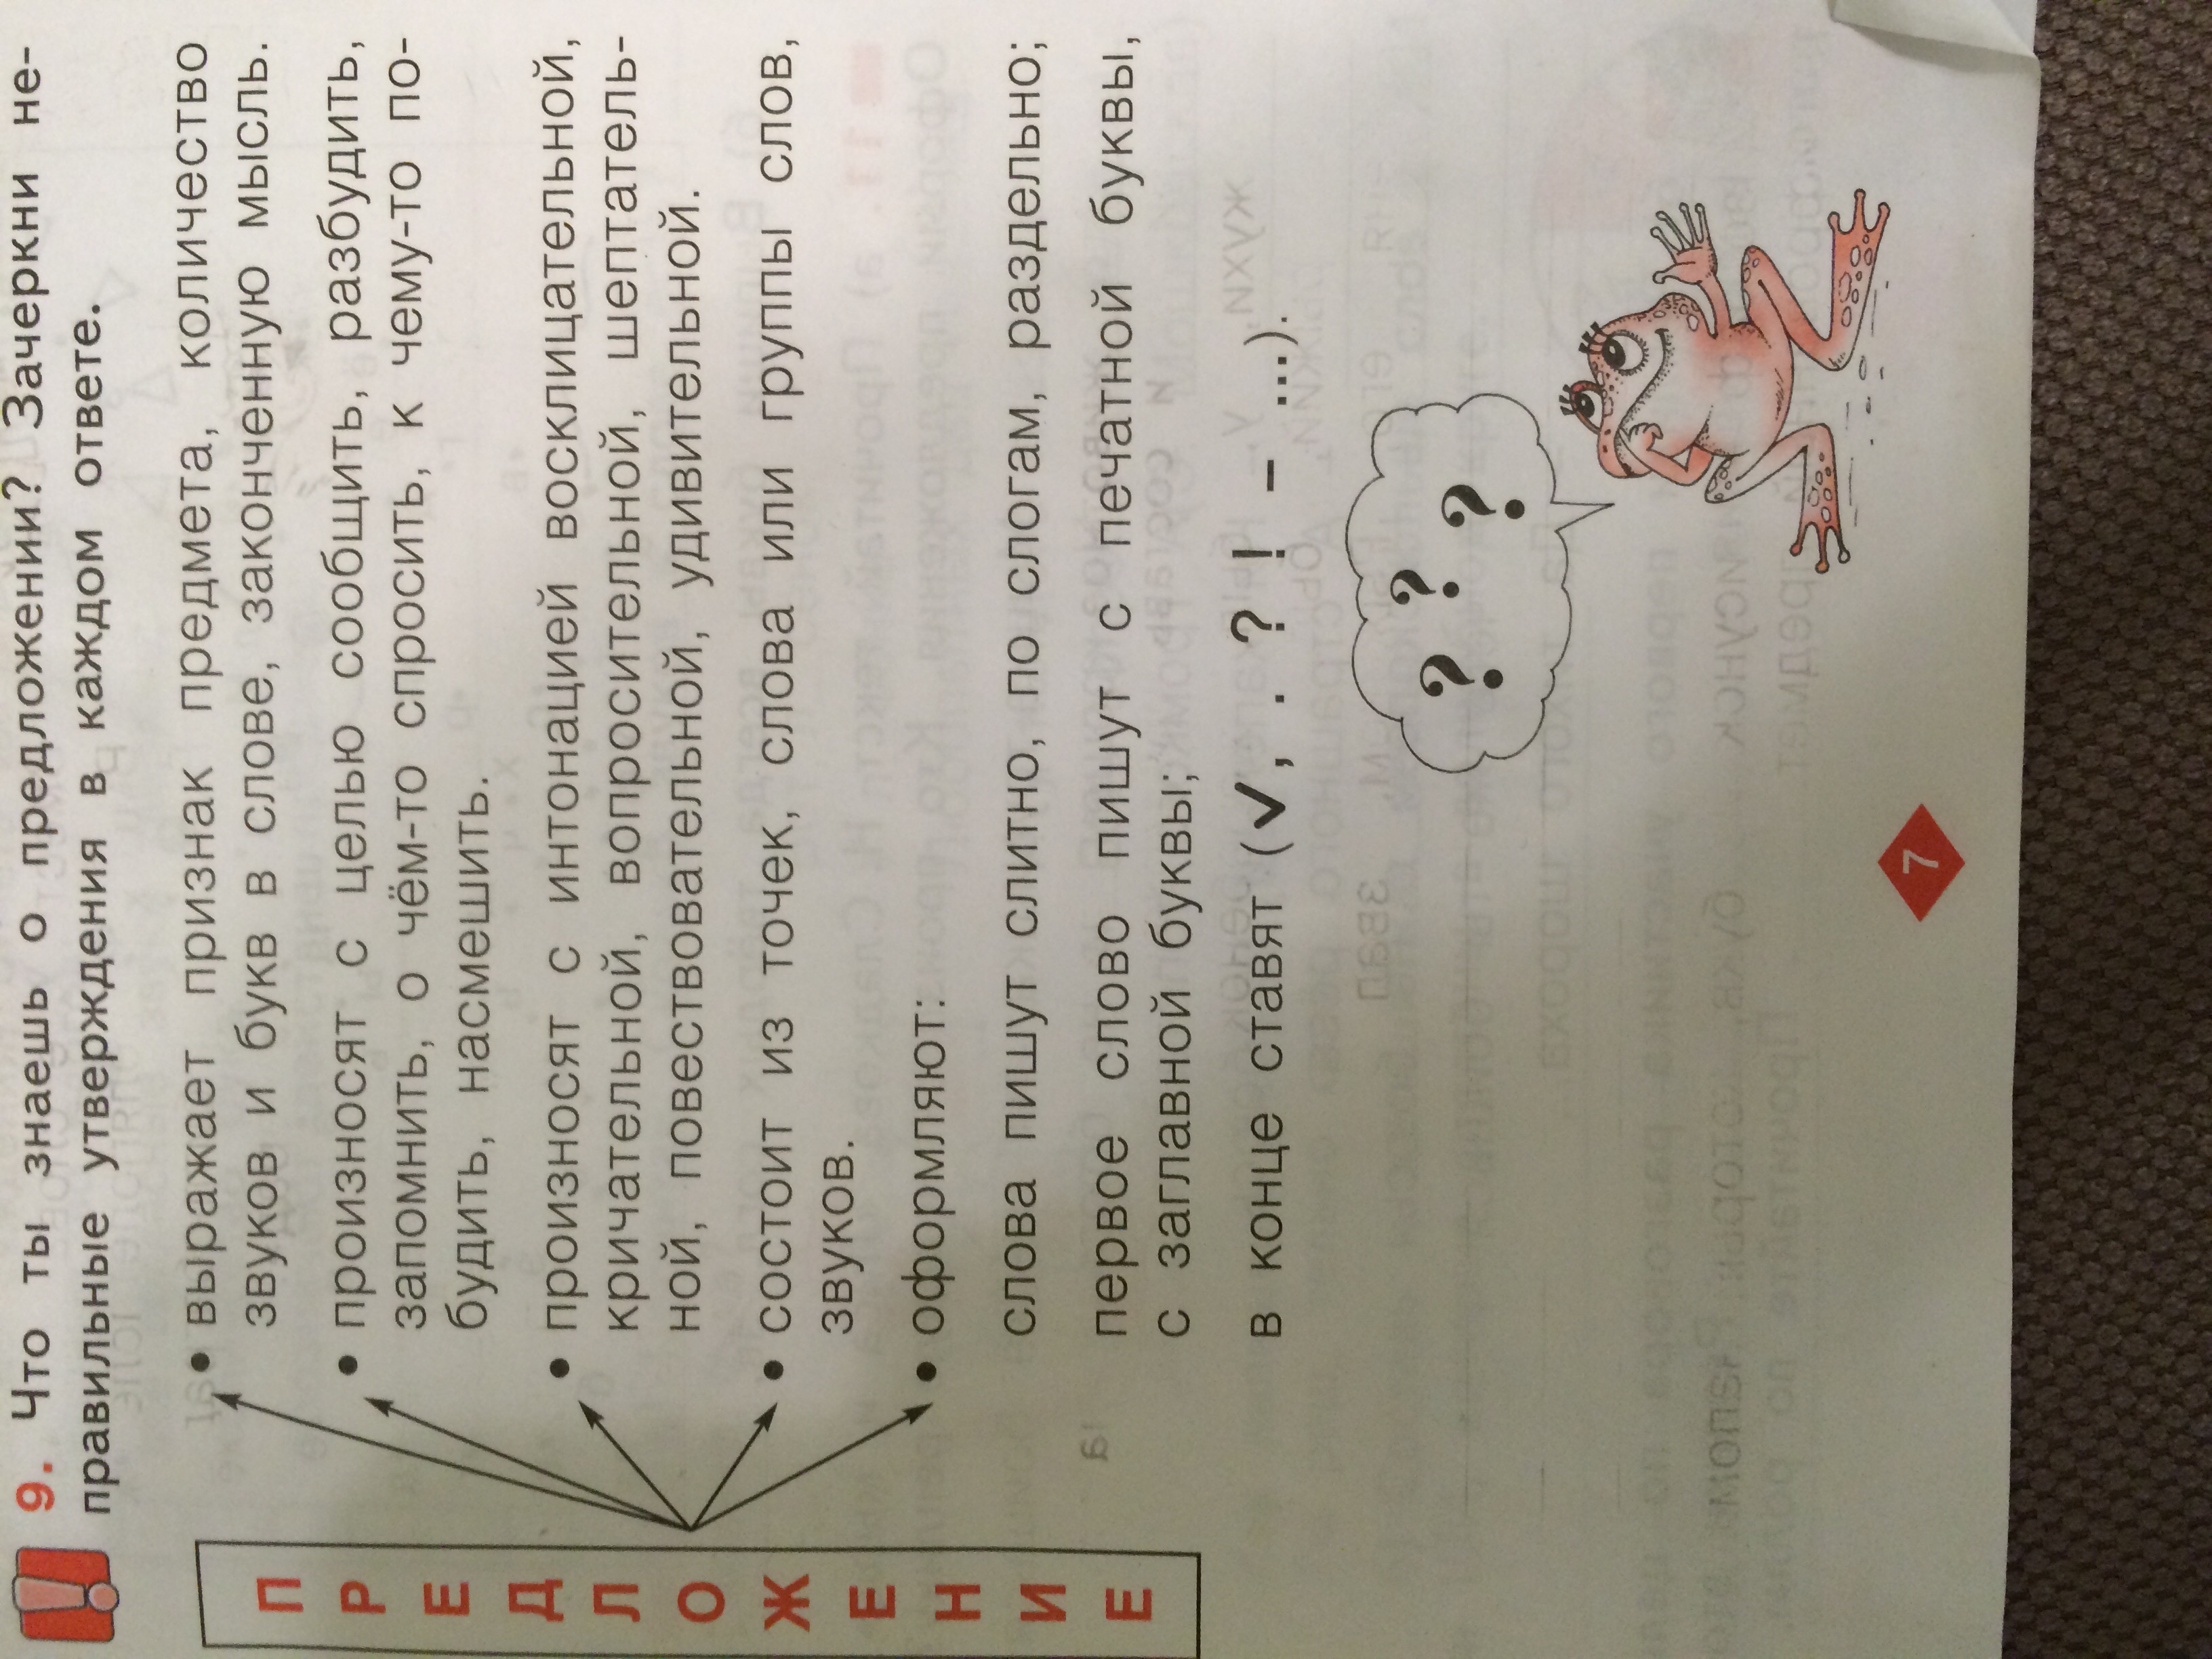 9. Что ты знаешь о предложении? Зачеркни не-
правильные утверждения в каждом ответе.
ПРЕДЛОЖЕНИЕ
• выражает признак предмета, количество
звуков и букв в слове, законченную мысль.
• произносят с целью сообщить, разбудить,
запомнить, о чём-то спросить, к чему-то по-
будить, насмешить.
• произносят с интонацией восклицательной,
кричательной, вопросительной, шептатель-
ной, повествовательной, удивительной.
• состоит из точек, слова или группы слов,
звуков.
• оформляют:
слова пишут слитно, по слогам, раздельно;
первое слово пишут с печатной буквы,
с заглавной буквы;
в конце ставят (✓, . ? ! – ...).
? ? ?
7